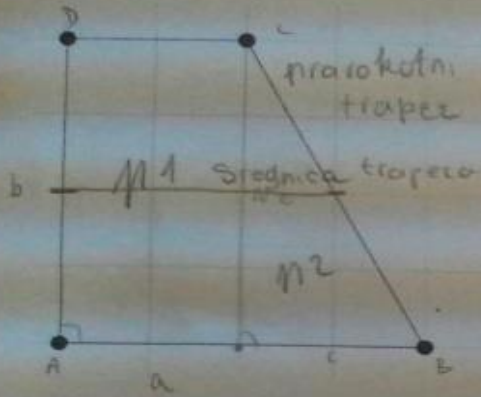 D
C
pravokutni
trapez
b
p1 Srednjica trapeza
p2
c
A
B
a